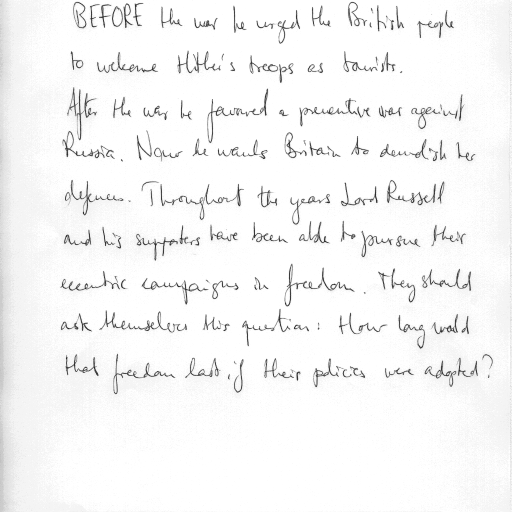 BEFORE the war he urged the British people
to welcome Hitler's troops as tourists.
After the war he favoured a preventive war against
Russia. Now he wants Britain to demolish her
defences. Throughout the years Lord Russell
and his supporters have been able to pursue their
eccentric campaigns in freedom. They should
ask themselves this question: How long would
that freedom last, if their policies were adopted?